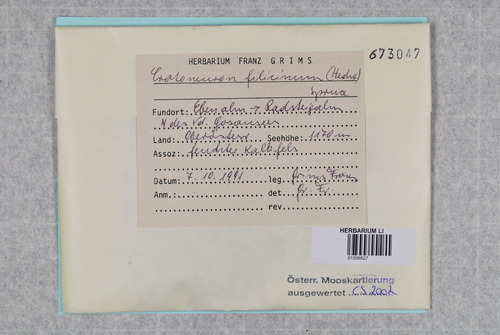 HERBARIUM FRANZ GRIMS
673047
Cratoneuron filicinum (Hedw.)
Spruce
Fundort: Ebenalm → Radsteigalm
Land: Oberösterr. Seehöhe: 1170m
Assoz: feuchter Kalkfels
Datum: 7.10.1991 leg. Grims Franz
Anm.: det. Gr. Fr.
rev.
HERBARIUM LI
Österr. Mooskartierung
ausgewertet CS 2002